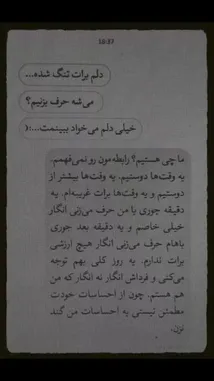 16:53
دلم برات تنگ شده...
می‌شه حرف بزنیم؟
خیلی دلم می‌خواد ببینمت...:(
ما چی هستیم؟ رابطه‌مون رو نمی‌فهمم.
یه وقت‌ها دوستیم. یه وقت‌ها بیشتر از
دوستیم و یه وقت‌ها برات غریبه‌ام. یه
دقیقه جوری با من حرف می‌زنی انگار
خیلی خاصم و یه دقیقه بعد جوری
باهام حرف می‌زنی انگار هیچ ارزشی
برات ندارم. یه روز کلی بهم توجه
می‌کنی و فرداش انگار نه انگار که من
هم هستم. چون از احساسات خودت
مطمئن نیستی به احساسات من گند
نزن.